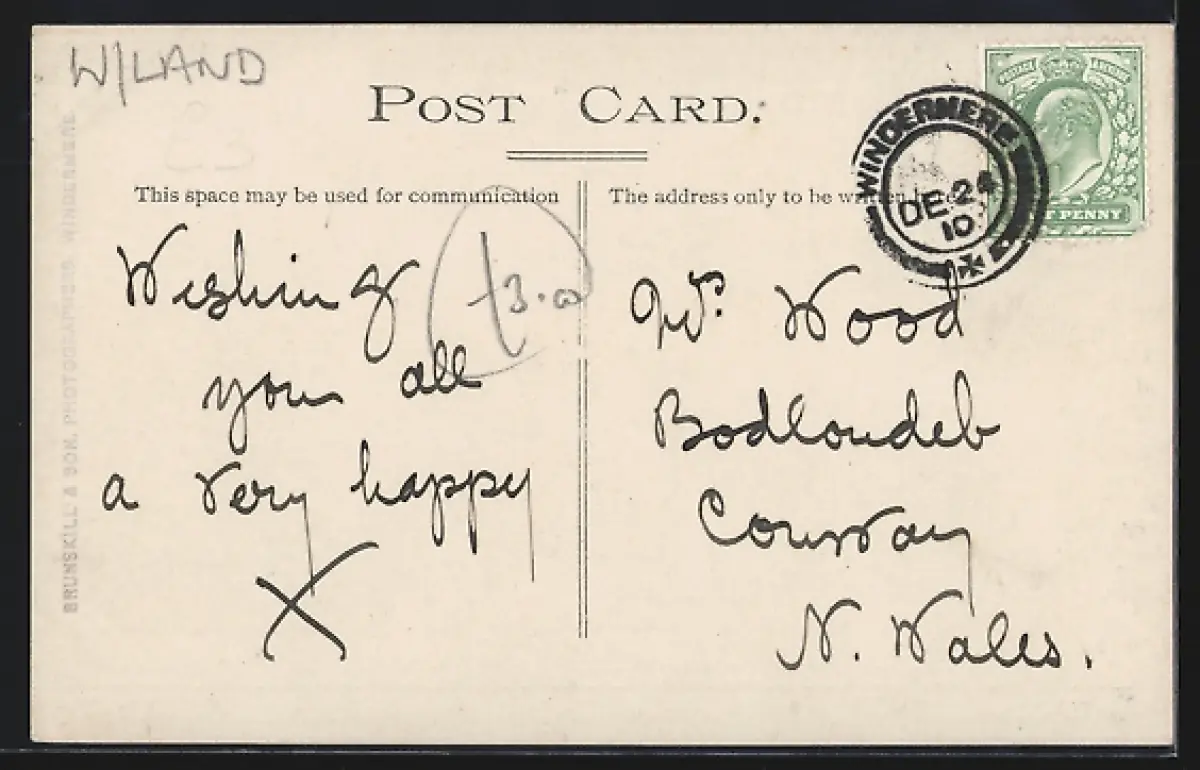 W/LAND
POST CARD.
This space may be used for communication
The address only to be written here
WINDERMERE
DE 24
10
POSTAGE REVENUE
PENNY
Wishing
you all
a very happy
X
3.00
Wood
Bodlondeb
Conway
N. Wales.
BRUNSKILL & SON, PHOTOGRAPHERS WINDERMERE